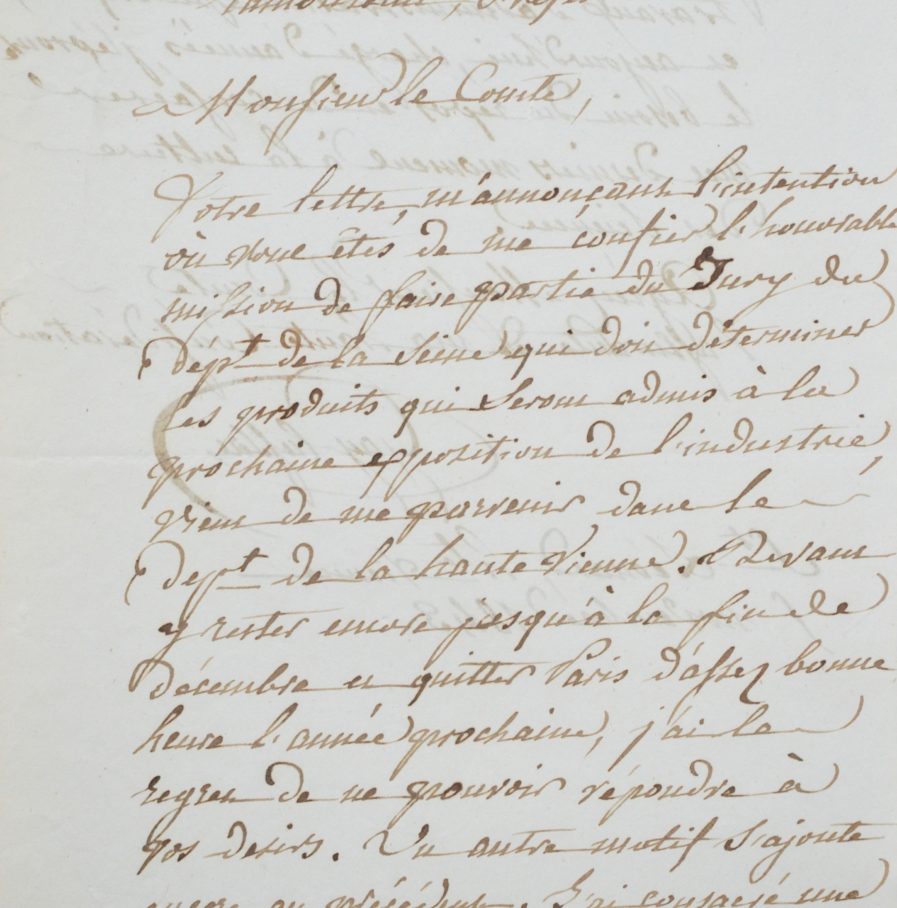 Monsieur le Comte,
Votre lettre, m'annonçant l'intention
où vous êtes de me confier l'honorable
mission de faire partie du Jury du
dépt de la Seine qui doit déterminer
les produits qui seront admis à la
prochaine exposition de l'industrie,
vient de me parvenir dans le
dept de la haute Vienne. Devant
y rester encore jusqu'à la fin de
décembre et quitter Paris d'assez bonne
heure l'année prochaine, j'ai le
regret de ne pouvoir répondre à
vos desirs. Un autre motif s'ajoute
encore au précédent. J'ai consacré une